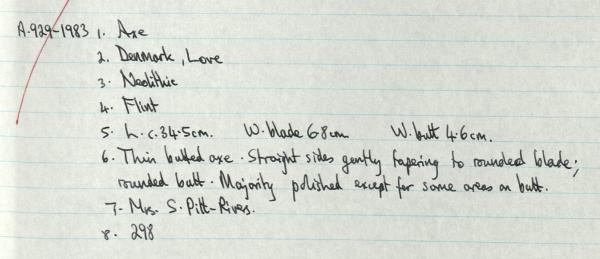 A.929-1983 1. Axe
2. Denmark, Love
3. Neolithic
4. Flint
5. L. c.34.5cm. W. blade 6.8cm W. butt 4.6cm.
6. Thin butted axe. Straight sides gently tapering to rounded blade;
rounded butt. Majority polished except for some areas on butt.
7. Mrs. S. Pitt-Rivers.
8. 298